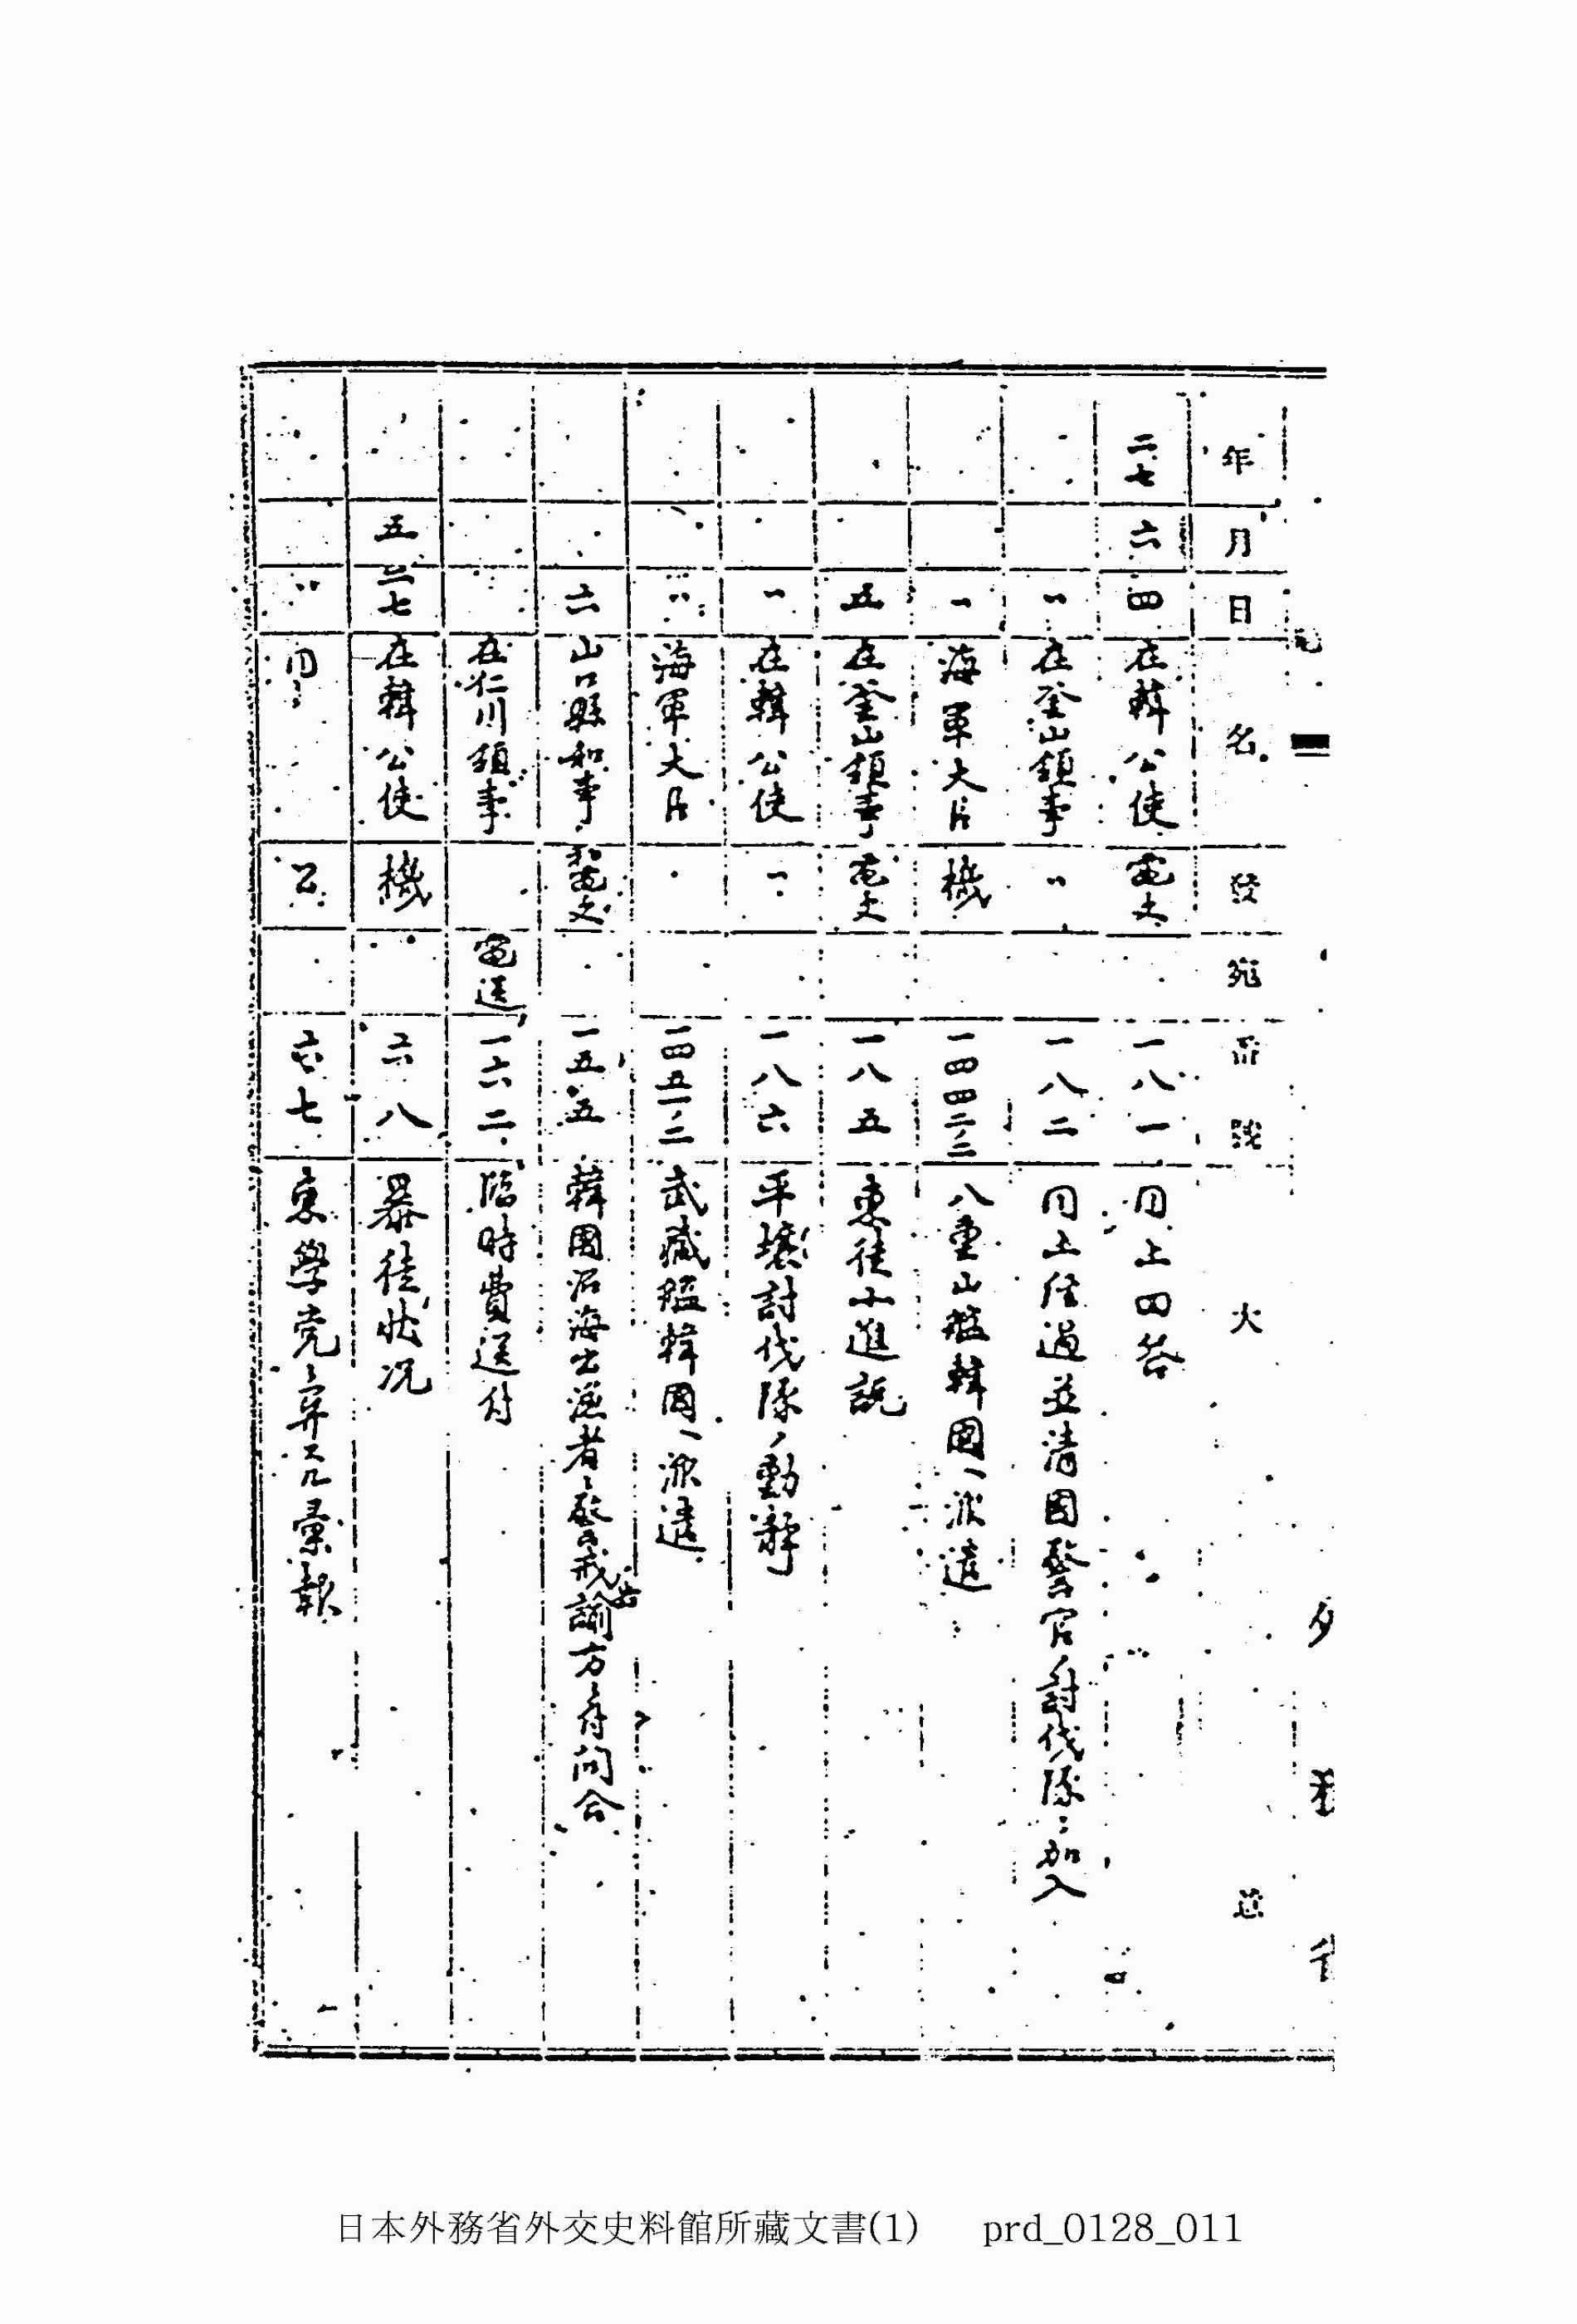 年 月 日 名 發 宛 番號 大
二七 六 四 在韓公使 電文 一八一 同上回答
〃 在釜山領事 〃 一八二 同上経過並清国警官ノ討伐隊ニ加入
〃 海軍大臣 機 一四四二、三 八重山艦韓國ヘ派遣
五 在釜山領事 電文 一八五 東徒小進説
〃 在韓公使 〃 一八六 平壌討伐隊ノ動静
〃 海軍大臣 一四五一、二 武蔵艦韓國ヘ派遣
六 山口縣知事 電文 一五五 韓國沿海出漁者ニ警戒諭方ニ付問合
在仁川領事 電送 一六二 臨時費送付
五 二七 在韓公使 機 六八 暴徒状况
〃 同 公 六七 東學党ニ彙報
日本外務省外交史料館所藏文書(1) prd_0128_011